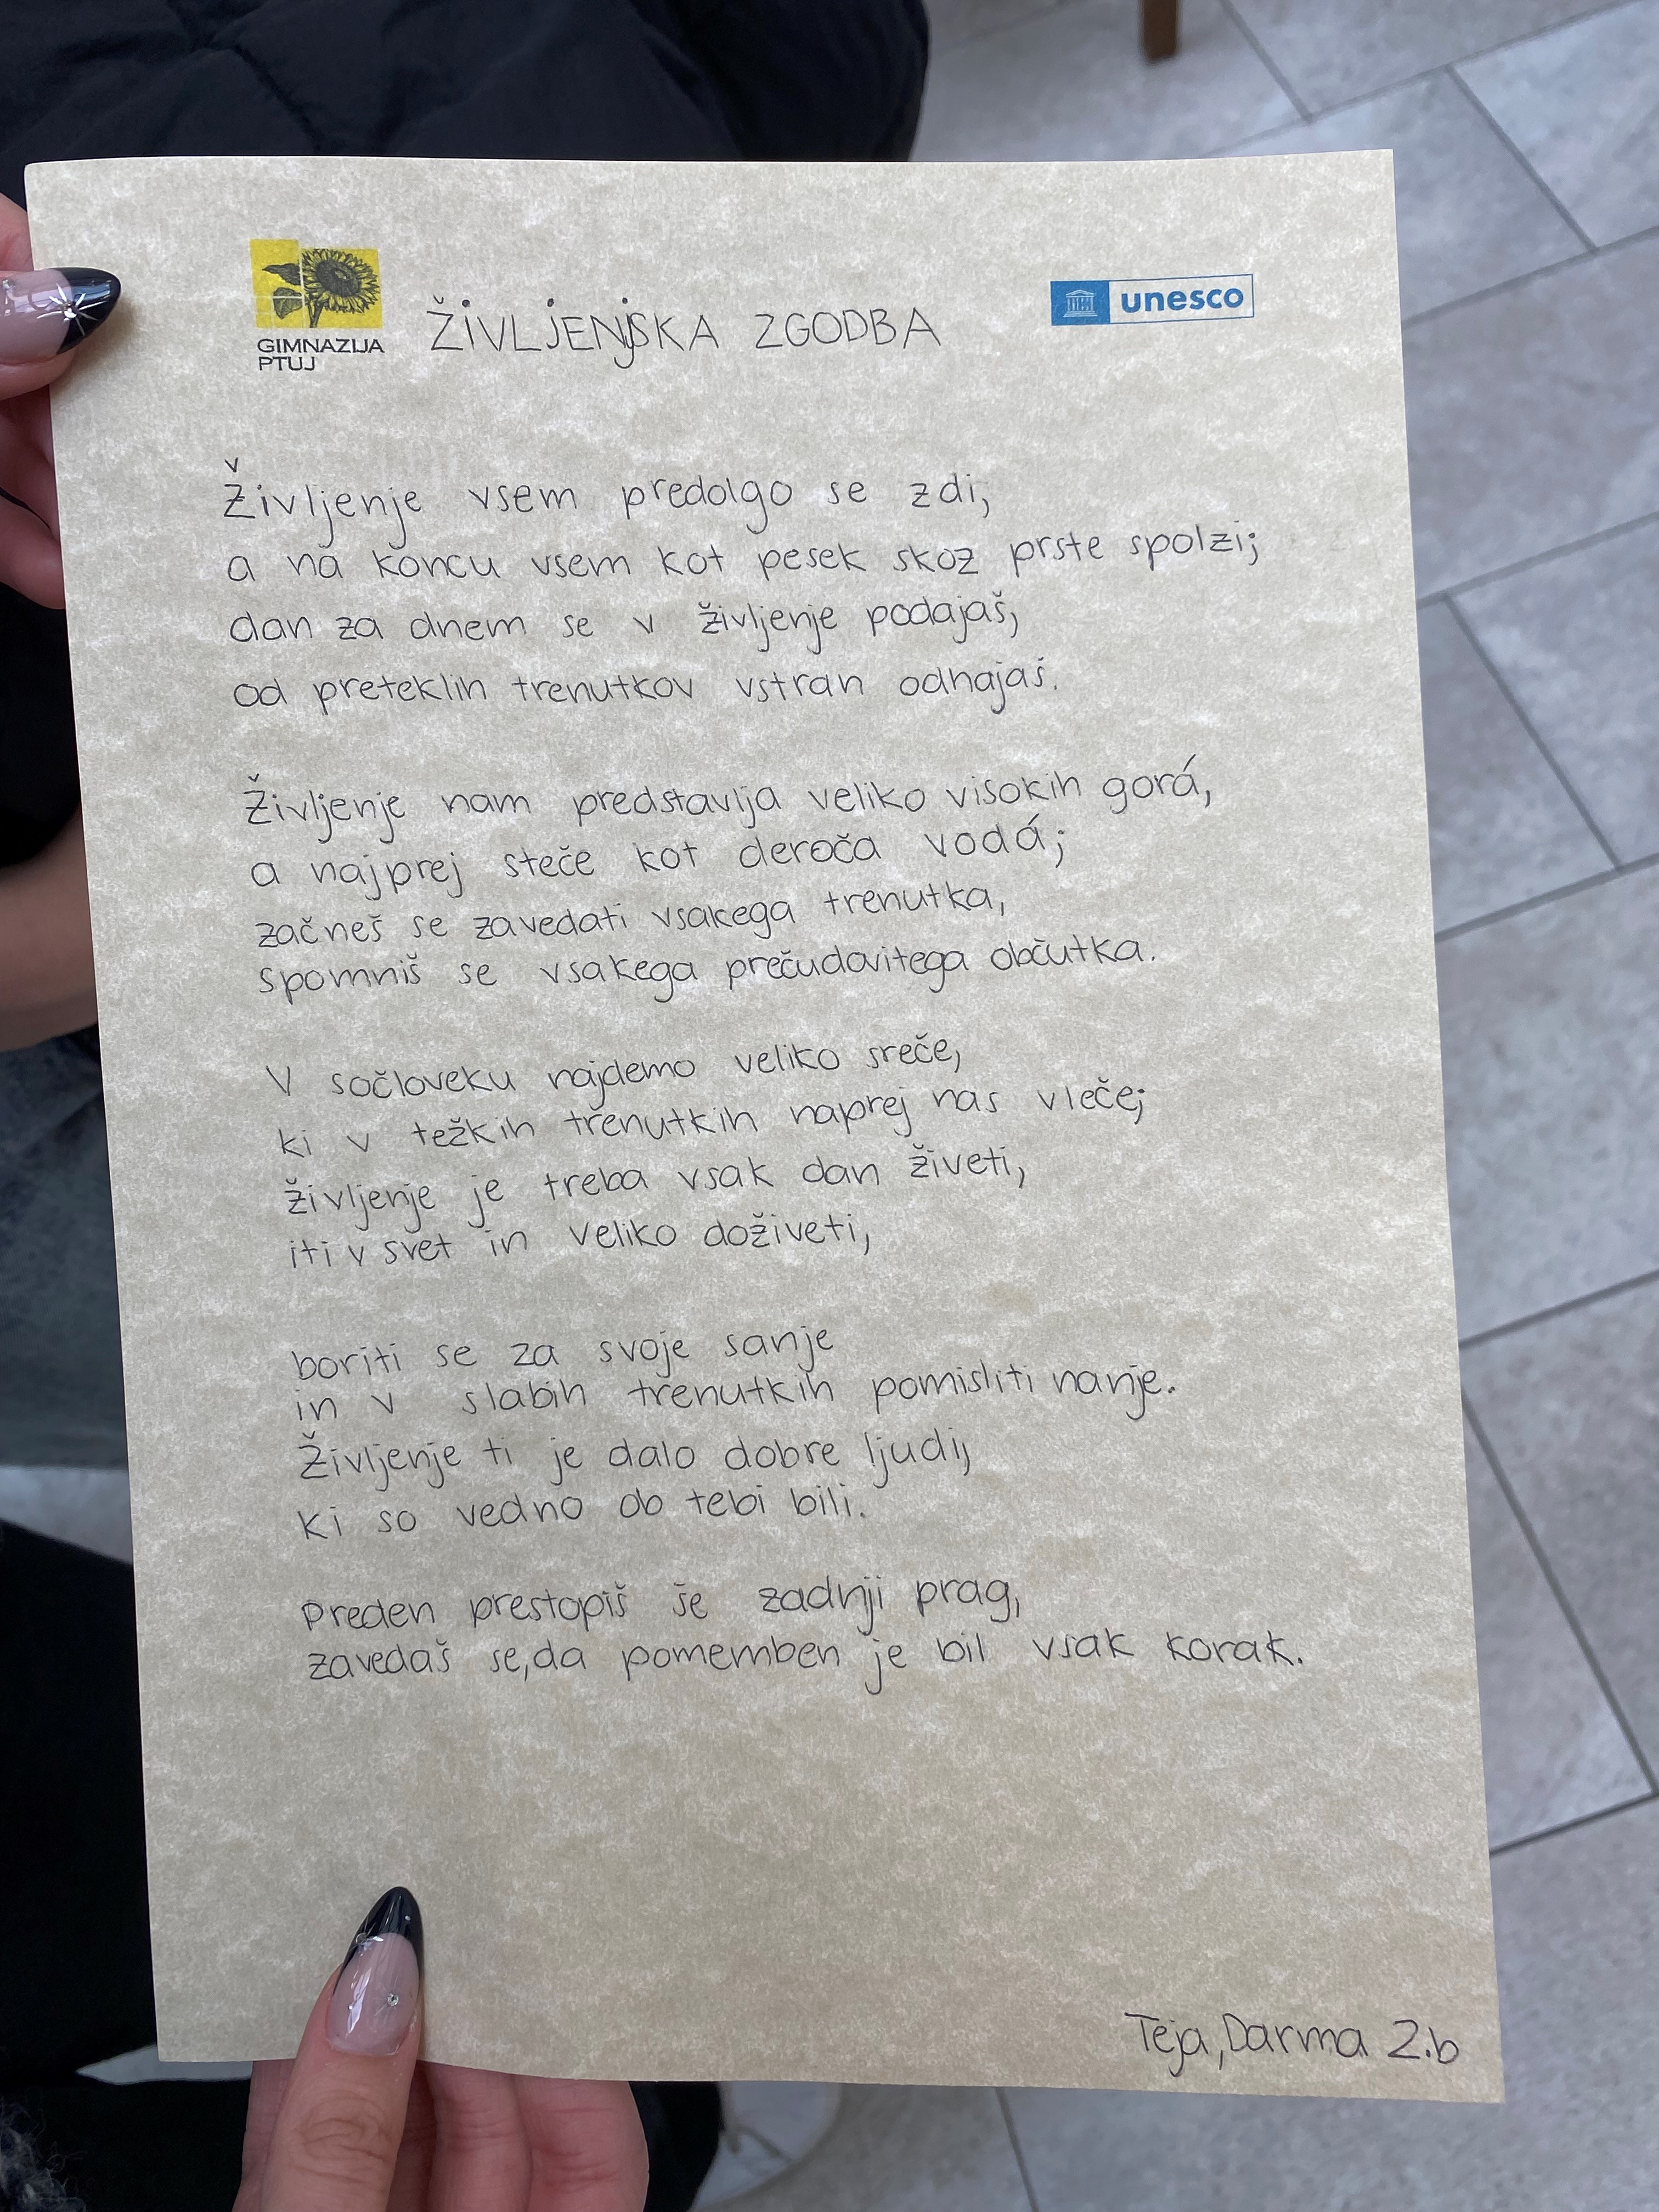 GIMNAZIJA
PTUJ
ŽIVLJENJSKA ZGODBA
unesco
Življenje vsem predolgo se zdi,
a na koncu vsem kot pesek skoz prste spolzi;
dan za dnem se v življenje podajaš,
od preteklih trenutkov vstran odhajaš.
Življenje nam predstavlja veliko visokih gorá,
a najprej steče kot deroča vodá;
začneš se zavedati vsakega trenutka,
spomniš se vsakega prečudovitega občutka.
V sočloveku najdemo veliko sreče,
ki v težkih trenutkih naprej nas vleče;
življenje je treba vsak dan živeti,
iti v svet in veliko doživeti,
boriti se za svoje sanje
in v slabih trenutkih pomisliti nanje.
Življenje ti je dalo dobre ljudi,
ki so vedno ob tebi bili.
Preden prestopiš še zadnji prag,
zavedaš se,da pomemben je bil vsak korak.
Teja,Darma 2.b